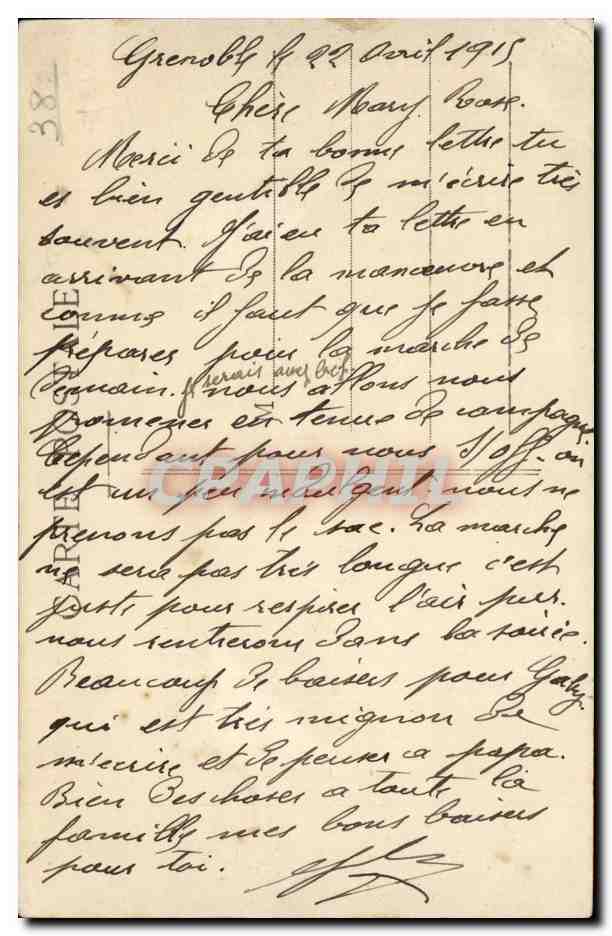 38
Grenoble le 22 Avril 1915
Chère Mary Rose.
Merci de ta bonne lettre tu
es bien gentille de m'écrire très
souvent. J'ai eu ta lettre en
arrivant de la manœuvre et
comme il faut que je fasse
préparer pour la marche de
demain. nous allons nous
je serais avec
promener en tenue de campagne
Cependant pour nous S/off. on
est un peu indulgent. nous ne
prenons pas le sac. La marche
ne sera pas très longue c'est
juste pour respirer l'air pur.
nous rentrerons dans la soirée.
Beaucoup de baisers pour Gaby
qui est très mignon de
m'écrire et de penser a papa.
Bien des choses a toute la
famille mes bons baisers
pour toi.
CARTE POSTALE
M
CPAPHIL